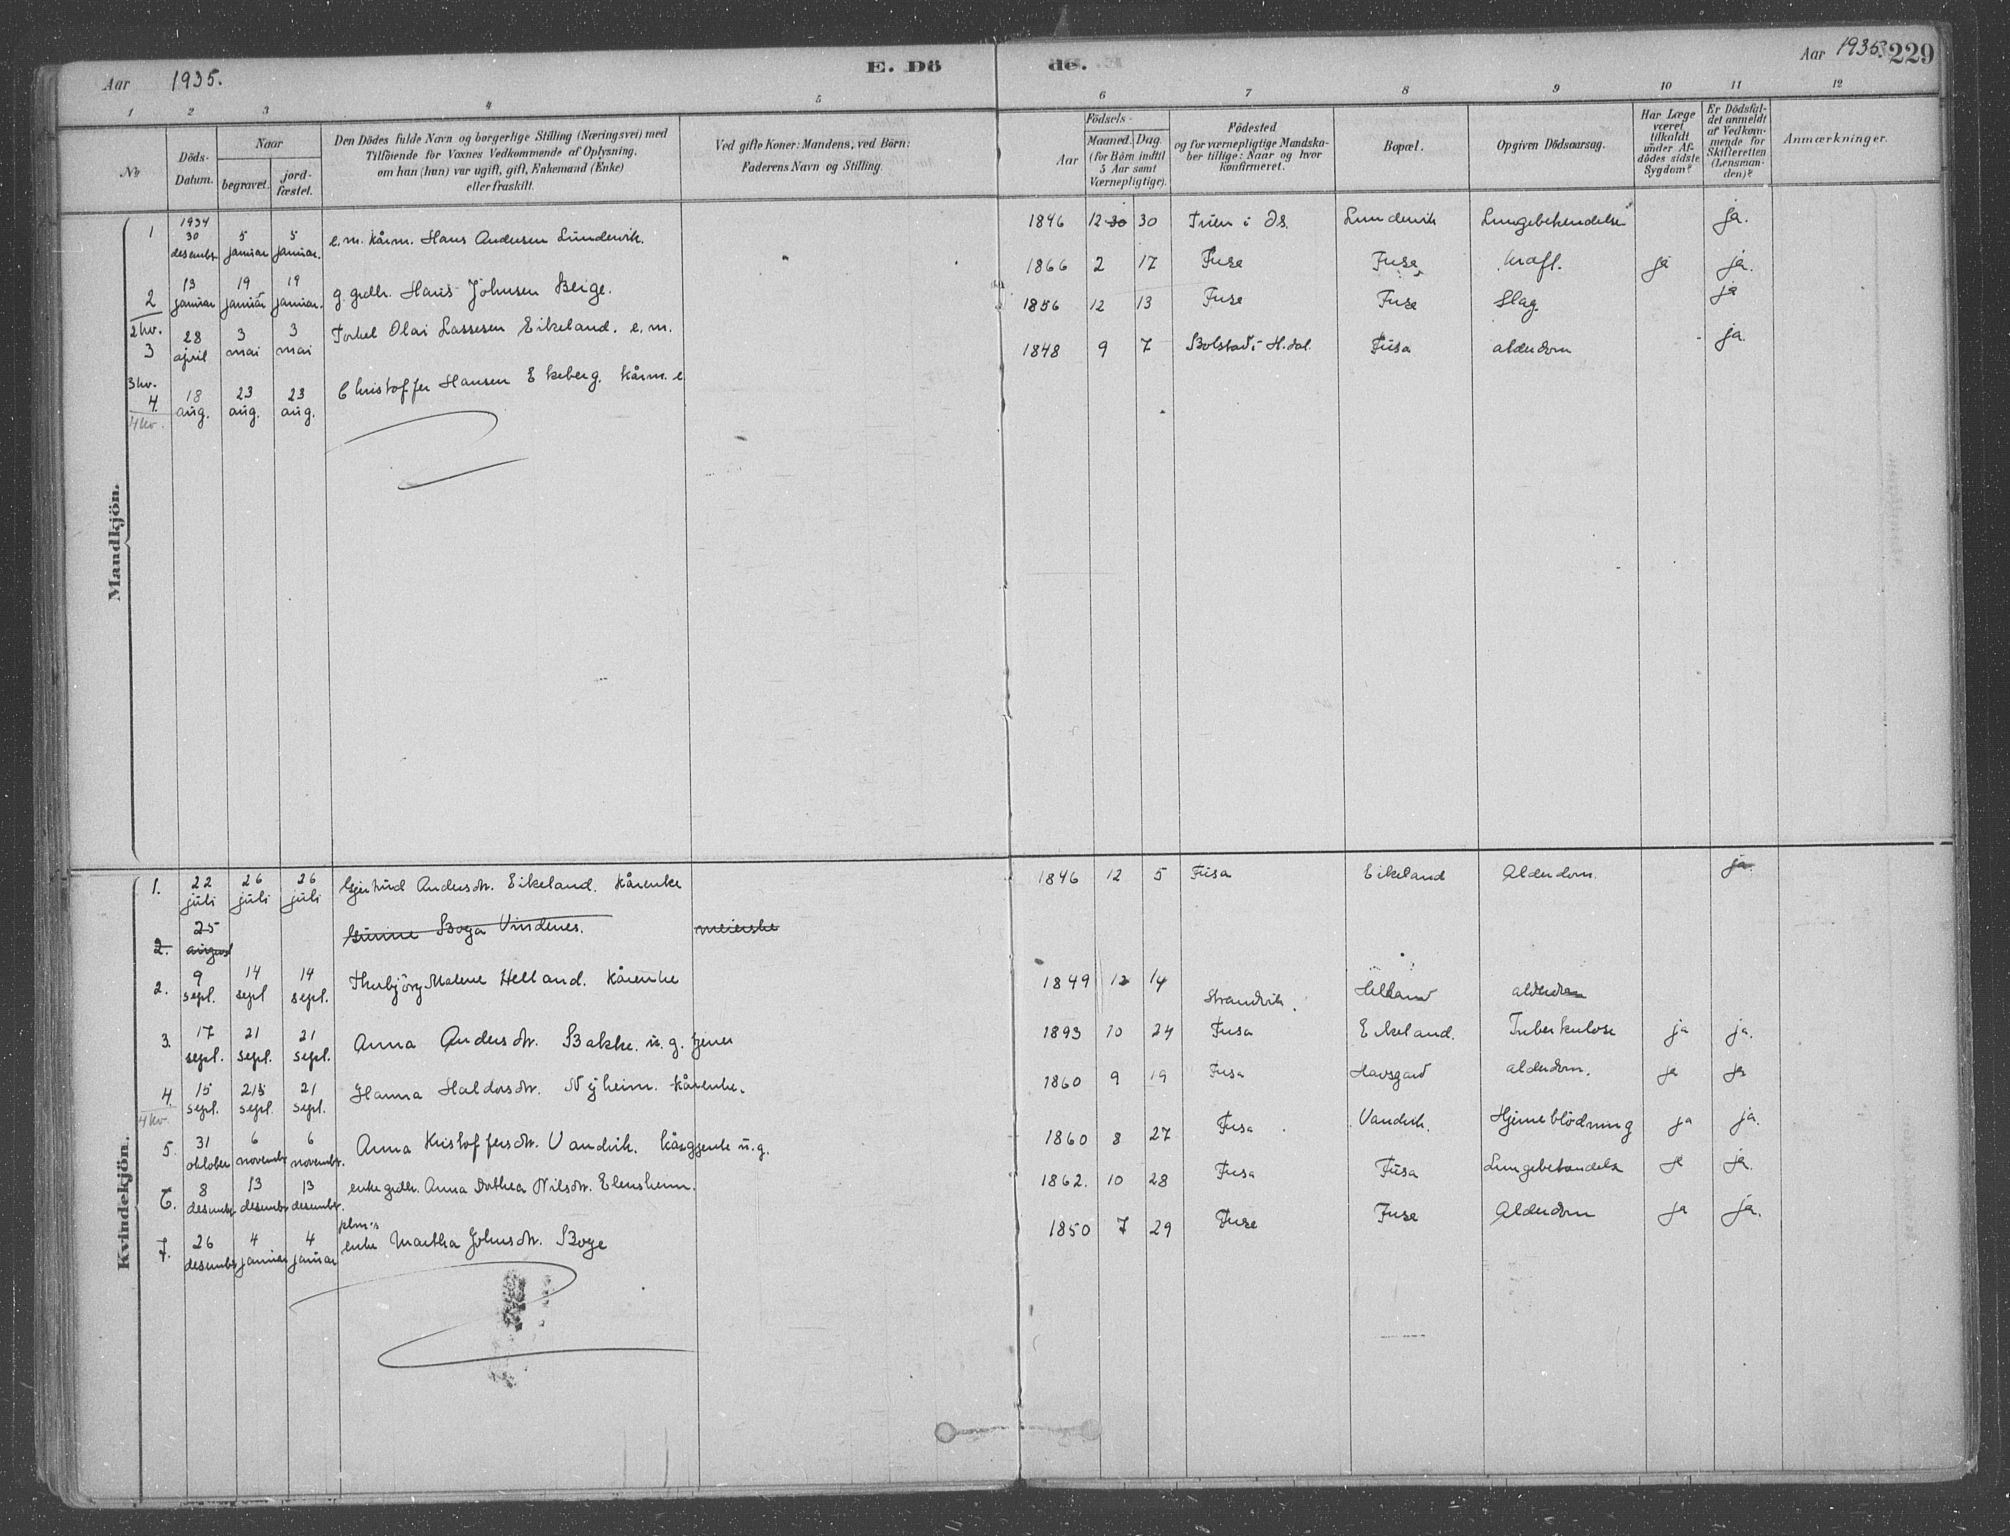 Aar 1935. E. Dö de. Aar 1935. 229
1 2 3 4 5 6 7 8 9 10 11 12
No
Döds-
Datum.
Naar
begravet.
jord-
fæstet.
Den Dödes fulde Navn og borgerlige Stilling (Næringsvei) med
Tilföiende for Voxnes Vedkommende af Oplysning.
om han (hun) var ugift, gift, Enkemand (Enke)
eller fraskilt.
Ved gifte Koner: Mandens, ved Börn:
Faderens Navn og Stilling.
Födsels-
Aar
Maaned. Dag.
(for Börn indtil
5 Aar samt
Værnepligtige).
Födested
og for værnepligtige Mandska-
ber tillige: Naar og hvor
konfirmeret.
Bopæl.
Opgiven Dödsaarsag.
Har Læge
været
tilkaldt
under Af-
dödes sidste
Sygdom?
Er Dödsfal-
det anmeldt
af Vedkom-
mende for
Skifteretten
(Lensman-
den)?
Anmærkninger.
Mandkjön.
1 1934 30 desembr. 5 januar 5 januar. e.m. kårm. Hans Andersen Lundervik. 1846 12 30 30 i Os. Lundervik Lungebetendelse ja.
2 13 januar 19 januar 19 januar. g. grdbr. Hans Johnsen Berge. 1866 2 17 Fusa Fusa kræft. ja ja.
2 kv.
3 28 april 3 mai 3 mai Torkel Olai Lassesen Eikeland. e.m. 1856 12 13 Fusa Fusa Slag ja
3 kv.
4. 18 aug. 23 aug. 23 aug. Christoffer Hansen Ekeberg. kårm. e. 1848 9 7 Bolstad i H.dal Fusa alderdom ja.
4 kv.
Kvindekjön.
1. 22 juli 26 juli 26 juli Gjertrud Andersdtr. Eikeland. kårenke 1846 12 5 Fusa Eikeland Alderdom. ja.
2. 25 august Gunne Boga Vindenes. meierske
2. 9 sept. 14 sept 14 sept. Thorbjörg Malene Helland. kårenke 1849 12 14 Strandvik. Helland alderdom
3. 17 sept. 21 sept. 21 sept. Anna Andersdtr. Bakke. u.g. tjener 1893 10 24 Fusa Eikeland. Tuberkulose ja ja.
4. 15 sept. 21 sept. 21 sept. Hanna Haldorsdtr. Nyheim. kårenke. 1860 9 19 Fusa Havsgard alderdom. ja ja
4 kv.
5. 31 oktober 6 novembr 6 novembr. Anna Kristoffersdtr. Vandvik. kårgjente u.g. 1860 8 27 Fusa Vandvik. Hjerneblödning ja ja.
6. 8 desembr 13 desembr 13 desembr. enke grdbr. Anna Dorthea Nilsdtr. 1862. 10 28 Fusa Fusa Lungebetendelse ja ja.
7. 26 desembr 4 januar 4 januar plm.s enke Martha Johnsdtr. Boge 1850 7 29 Fusa Fusa Alderdom ja ja.